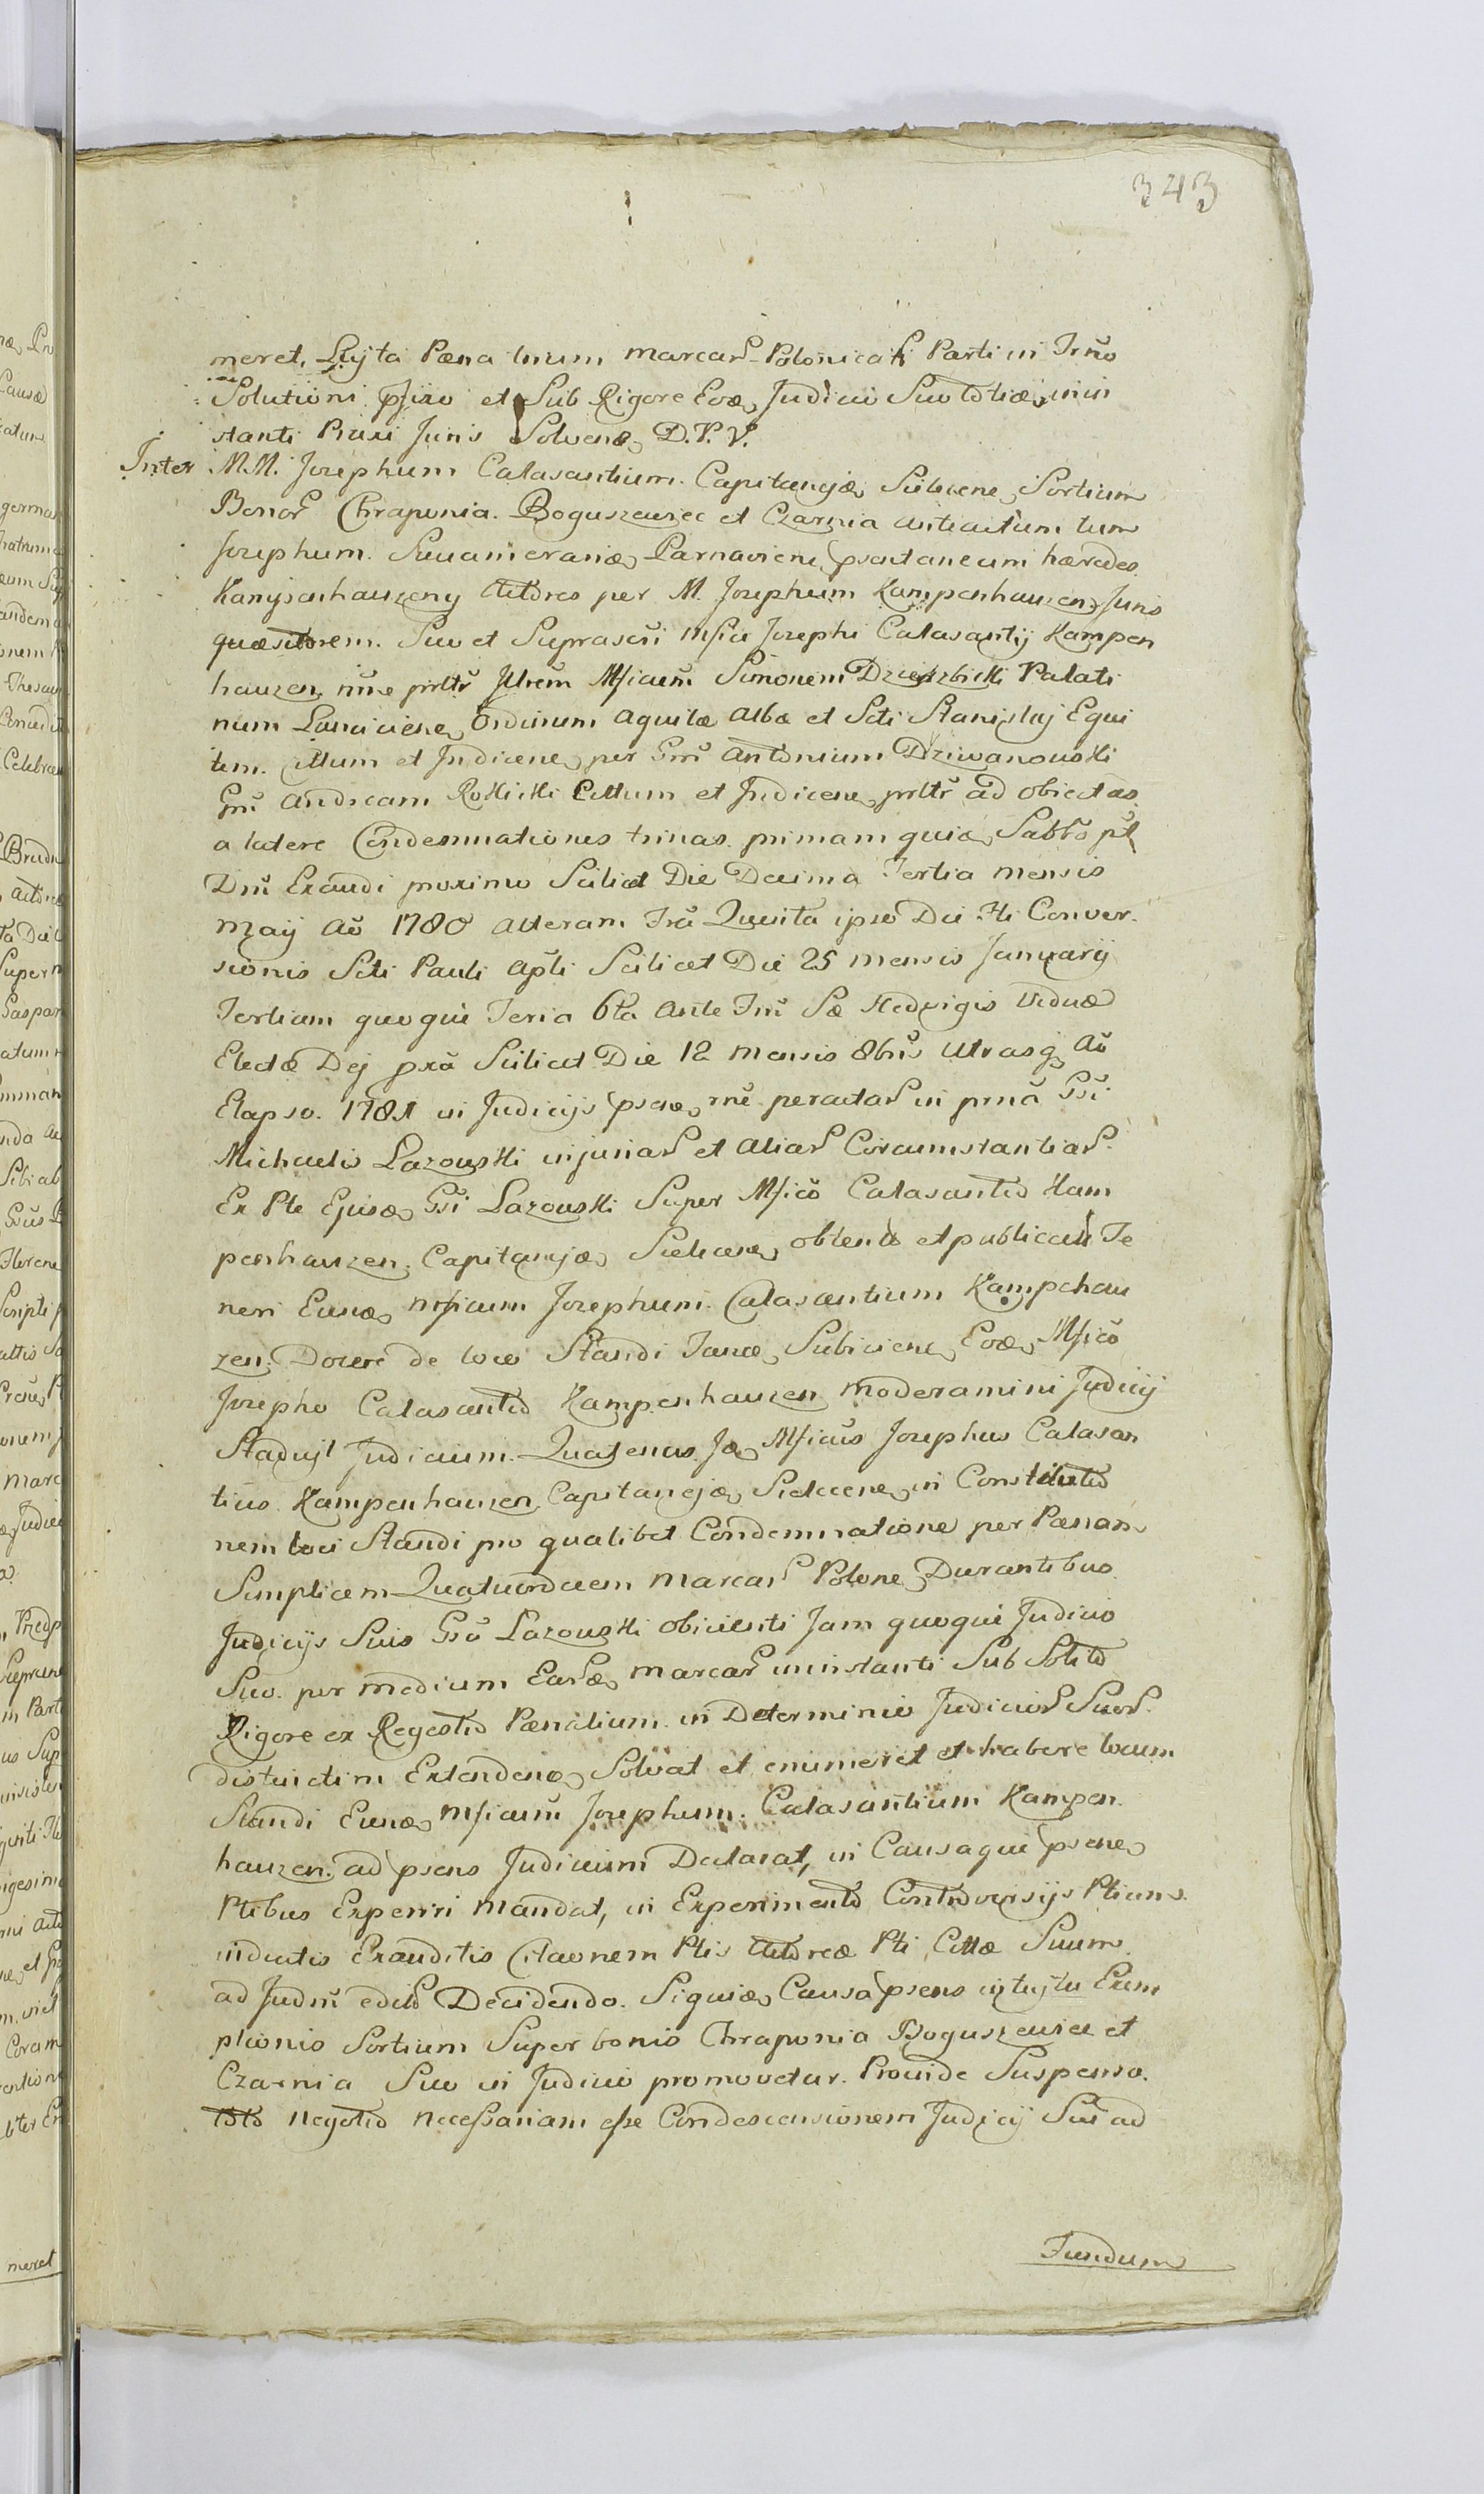 343
meret, Luÿta Pæna trium marcar Polonicar Parti in Trño
Solutioni pfixo et Sub Rigore Eoæ Judicio Suo inin
stanti Præsi Juris Solvenæ D. P. V.
Inter M.M. Josephum Calasantium. Capitanejæ Sielecene Sortium
Bonor Chraponia. Boguszewiec et Czarnia antiactum tum
Josephum. Parnaviene psentaneum hæredes
Kampenhauzeny Actores per M. Josephum Kampenhauzen Juris
quæsitorem. Suo et Suprascri Mfici Josephi Calasantÿ Kampen
hauzen, nõe prltr Jllrem Mficum Simonem Dzierzbicki Palati
num Lanciciene Ordinum Aquilæ Albæ et Scti Stanislaj Equi
tem. Cittum et Judicene per Gm Antonium Dziwanowski
Gm Andream Rokicki Cittum et Judicene prltr ad obiectas
a latere Condemnationes trinas. primam quiæ Sabbo pt
Dm Exaudi proximo Scilicet Die Decima Tertia mensis
Maÿ Ao 1780 alteram Fra Quinta ipso Die Fti Conver
sionis Scti Pauli Apli Scilicet Die 25 mensis Januarÿ
Tertiam quoque Feria 6ta Ante Fm Sæ Hedvigis Viduæ
Electæ Dej pxa Scilicet Die 12 Mensis 8bris utrasq Ao
Elapso. 1781 in Judicÿs psene rne peractar in pmã Gsi
Michaelis Lazowski injuriar et aliar Circumstantiar
Ex Pte Ejusæ Gsi Lazowski Super Mfico Calasantio Kam
penhauzen. Capitanejæ Sielecene obtento et publicato Te
neri Eunæ Mficum Josephum Calasantium Kampehau
zen. Docere de loco Standi Eoæ Mfico
Josepho Calasantio Kampenhauzen moderamini Judicÿ
Staduÿt Judicium. Quatenus Jæ Mficus Josephus Calasan
tius Kampenhauzen Capitanejæ Sielecene in Constitutio
nem loci Standi pro qualibet Condemnatione per Pænam
Simplicem Quatuordecem Marcar Polone Durantibus
Judicÿs Suis Gso Lazowski obicienti Jam quoque Judicio
Suo. per medium Earæ marcar ininstanti Sub Solito
Rigore ex Regestro Pænalium in Determinio Judicior Suor
distinctim Extendeno Solvat et enumeret et habere locum
Standi Eunæ Mficum Josephum. Calasantium Kampen
hauzen. ad psens Judicium Declarat, in Causaque psene
Ptibus Experiri mandat, in Experimento Controversÿs Ptium
inductis Exauditis Citaonem Ptis Actoreæ Pti Cittæ Suum
ad Judm edito Decidendo. Siquiæ Causa psens intuÿtu Exem
ptionis Sortium Super bonis Chraponia Boguszewice et
Czarnia Suo in Judicio promovetur. Proinde Suspenso.
toto negotio necessariam esse Condescensionem Judicÿ Sui ad
Fundum